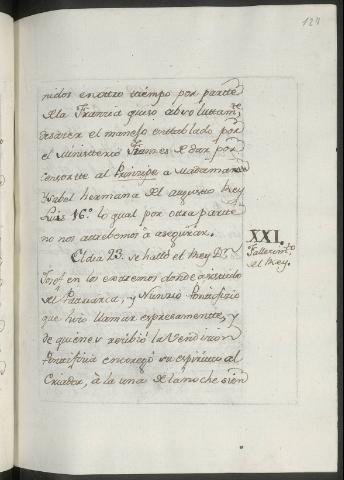 124
nidos en otro tiempo por parte
de la Francia quiso absoluttam.te
desaser el manejo entablado por
el Ministerio Franses de dar por
consorte al Principe a Madama
Ysabel hermana del augusto Rey
Luis 16.º lo qual por otra parte
no nos attrebemos a asegurar.
El dia 23. se halló el Rey D.n
Josef en los extremos donde asistido
del Patriarca, y Nunzio Pontifizio
que hizo llamar expresamente, y
de quienes recibió la Vendizion
Pontifisia encargó su espiritu al
Criador, à la una de la noche sien
XXI.
Fallecim.to
del Rey.